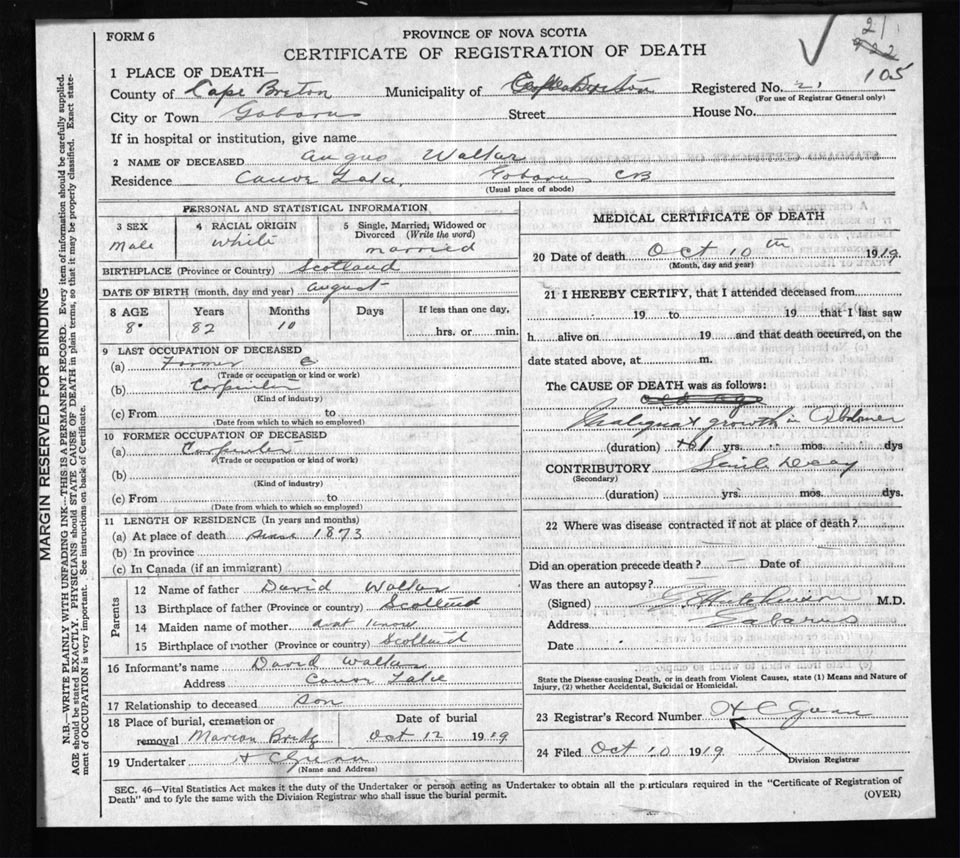 FORM 6
PROVINCE OF NOVA SCOTIA
CERTIFICATE OF REGISTRATION OF DEATH
21
922
105
1 PLACE OF DEATH—
County of Cape Breton Municipality of Cape Breton Registered No. 21
(For use of Registrar General only)
City or Town Gabarus Street House No.
If in hospital or institution, give name
2 NAME OF DECEASED Angus Walkar
Residence Canoe Lake, Gabarus CB
(Usual place of abode)
PERSONAL AND STATISTICAL INFORMATION
3 SEX
Male
4 RACIAL ORIGIN
White
5 Single, Married, Widowed or Divorced (Write the word)
married
BIRTHPLACE (Province or Country) Scotland
DATE OF BIRTH (month, day and year) August
8 AGE Years Months Days If less than one day,
82 10 hrs. or min.
9 LAST OCCUPATION OF DECEASED
(a) Farmer
(Trade or occupation or kind or work)
(b) Carpenter
(Kind of industry)
(c) From to
(Date from which to which so employed)
10 FORMER OCCUPATION OF DECEASED
(a) Carpenter
(Trade or occupation or kind or work)
(b)
(Kind of industry)
(c) From to
(Date from which to which so employed)
11 LENGTH OF RESIDENCE (In years and months)
(a) At place of death since 1873
(b) In province
(c) In Canada (if an immigrant)
Parents
12 Name of father David Walkar
13 Birthplace of father (Province or country) Scotland
14 Maiden name of mother dont know
15 Birthplace of mother (Province or country) Scotland
16 Informant's name David Walker
Address Canoe Lake
17 Relationship to deceased Son
18 Place of burial, cremation or removal Marion Bridg
Date of burial
Oct 12 1919
19 Undertaker H C Gunn
(Name and Address)
MEDICAL CERTIFICATE OF DEATH
20 Date of death Oct 10th 1919
(Month, day and year)
21 I HEREBY CERTIFY, that I attended deceased from
19 to 19 that I last saw
h alive on 19 and that death occurred, on the
date stated above, at m.
The CAUSE OF DEATH was as follows:
old age
Malignant growth in Abdomen
(duration) 1 yrs. mos. dys
CONTRIBUTORY Senile Decay
(Secondary)
(duration) yrs. mos. dys.
22 Where was disease contracted if not at place of death?
Did an operation precede death? — Date of
Was there an autopsy? —
(Signed) G Hutchinson M.D.
Address Gabarus
Date
State the Disease causing Death, or in death from Violent Causes, state (1) Means and Nature of
Injury, (2) whether Accidental, Suicidal or Homicidal.
23 Registrar's Record Number H C Gunn
24 Filed Oct 10 1919
Division Registrar
SEC. 46—Vital Statistics Act makes it the duty of the Undertaker or person acting as Undertaker to obtain all the particulars required in the "Certificate of Registration of
Death" and to fyle the same with the Division Registrar who shall issue the burial permit.
(OVER)
MARGIN RESERVED FOR BINDING
N.B.—WRITE PLAINLY WITH UNFADING INK—THIS IS A PERMANENT RECORD. Every item of information should be carefully supplied.
AGE should be stated EXACTLY. PHYSICIANS should STATE CAUSE OF DEATH in plain terms, so that it may be properly classified. Exact state-
ment of OCCUPATION is very important. See instructions on back of Certificate.